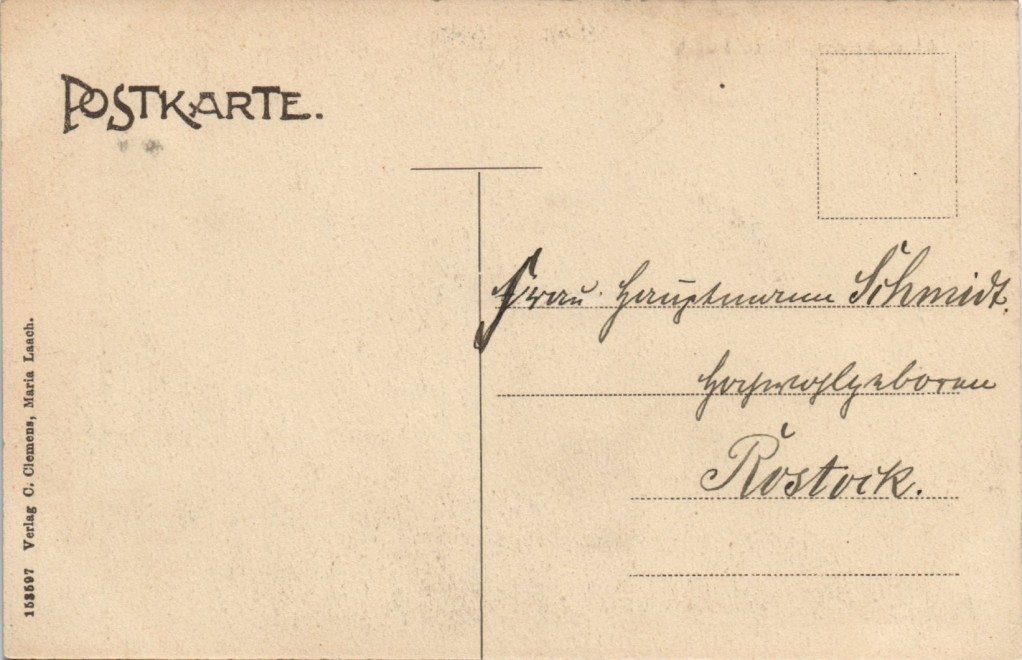 POSTKARTE.
Frau Hauptmann Schmidt.
Hochwohlgeboren
Rostock.
153597 Verlag C. Clemens, Maria Laach.